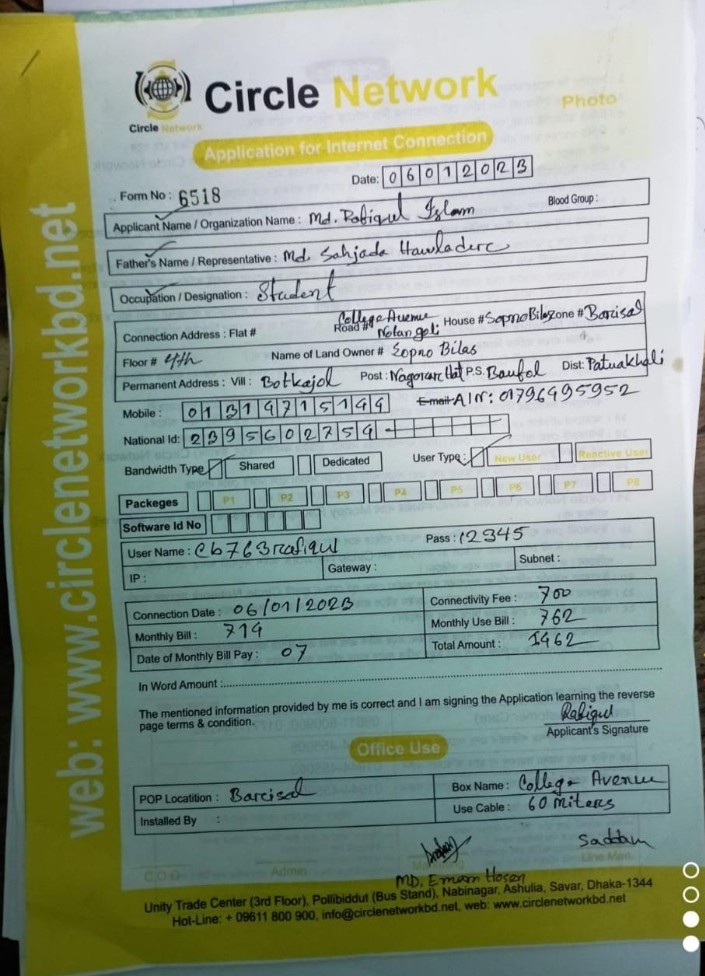 Circle Network
Circle Network
Photo
Application for Internet Connection
Date: 06012023
Form No : 6518
Applicant Name / Organization Name : Md. Rafiqul Islam Blood Group :
Father's Name / Representative : Md. Sahjada Hawladerc
Occupation / Designation : Student
Connection Address : Flat # Road # College Avenue Nolangoli House # Sopno Bilas zone # Barcisal
Floor # 4th Name of Land Owner # Sopno Bilas
Permanent Address : Vill : Botkajol Post : Nagorarc Hat P.S. Baufal Dist: Patuakhali
Mobile : 01319715144 Email AIN: 01796495952
National Id: 2395602754
Bandwidth Type Shared Dedicated User Type : New User Reactive User
Packeges P1 P2 P3 P4 P5 P6 P7 P8
Software Id No
User Name : cb763rcafiqul Pass : 12345
IP : Gateway : Subnet :
Connection Date : 06/01/2023 Connectivity Fee : 700
Monthly Bill : 714 Monthly Use Bill : 762
Date of Monthly Bill Pay : 07 Total Amount : 1462
In Word Amount :
The mentioned information provided by me is correct and I am signing the Application learning the reverse
page terms & condition.
Rafiqul
Applicant's Signature
Office Use
POP Locatition : Barcisal Box Name : College Avenue
Installed By : Use Cable : 60 miters
Saddam
C.O.O Admin Line Man
MD. Emam Hosen
Unity Trade Center (3rd Floor), Pollibiddut (Bus Stand), Nabinagar, Ashulia, Savar, Dhaka-1344
Hot-Line: + 09611 800 900, info@circlenetworkbd.net, web: www.circlenetworkbd.net
web: www.circlenetworkbd.net